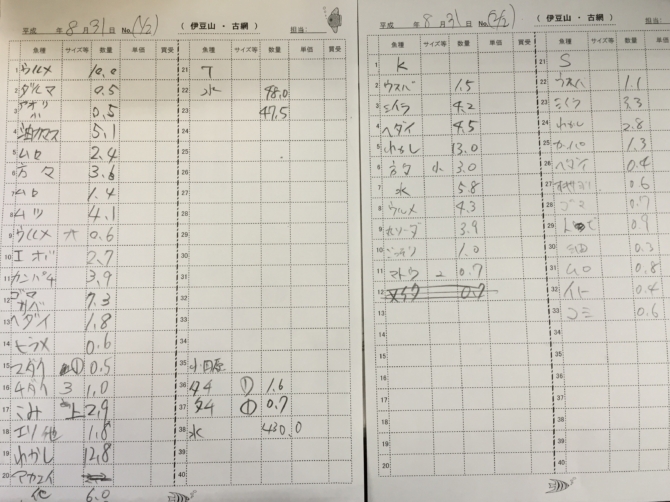 平成 年 8 月 31 日 No.(1/2) ( 伊豆山 ・ 古網 ) 担当
魚種 サイズ等 数量 単価 買受 魚種 サイズ等 数量 単価 買受
1 ウルメ 10.0
2 ダルマ 0.5
3 アオリイカ 0.5
4 油カマス 5.1
5 ムロ 2.4
6 方タ 3.6
7 ムロ 1.4
8 ムツ 4.1
9 ウルメ 大 0.6
10 エボ 2.7
11 カンパチ 3.9
12 7.3
13 ヘダイ 1.8
14 ヒラメ 0.6
15 マダイ ① 0.5
16 チダイ 3 1.0
17 こみ 上 2.9
18 1.8
19 わかし 12.8
20
他 6.0
21 T
22 水 48.0
23 47.5
24
25
26
27
28
29
30
31
32
33
34
35 小田原
36 タチ ① 1.6
37 タチ ① 0.7
38 水 430.0
39
40
平成 年 8 月 31 日 No.(2/2) ( 伊豆山 ・ 古網 ) 担当
魚種 サイズ等 数量 単価 買受 魚種 サイズ等 数量 単価 買受
1 K
2 ウスバ 1.5
3 シイラ 4.2
4 ヘダイ 4.5
5 わかし 13.0
6 方タ 小 3.0
7 水 5.8
8 ウルメ 4.3
9 ホソーダ 3.9
10 1.0
11 マトウ 2 0.7
12 0.7
13
14
15
16
17
18
19
20
21 S
22 ウスバ 1.1
23 シイラ 3.3
24 わかし 2.8
25 カンパ 1.3
26 ヘダイ 0.4
27 0.6
28 ゴマ 0.7
29 0.9
30 0.3
31 ムロ 0.8
32 イト 0.4
33 コミ 0.6
34
35
36
37
38
39
40